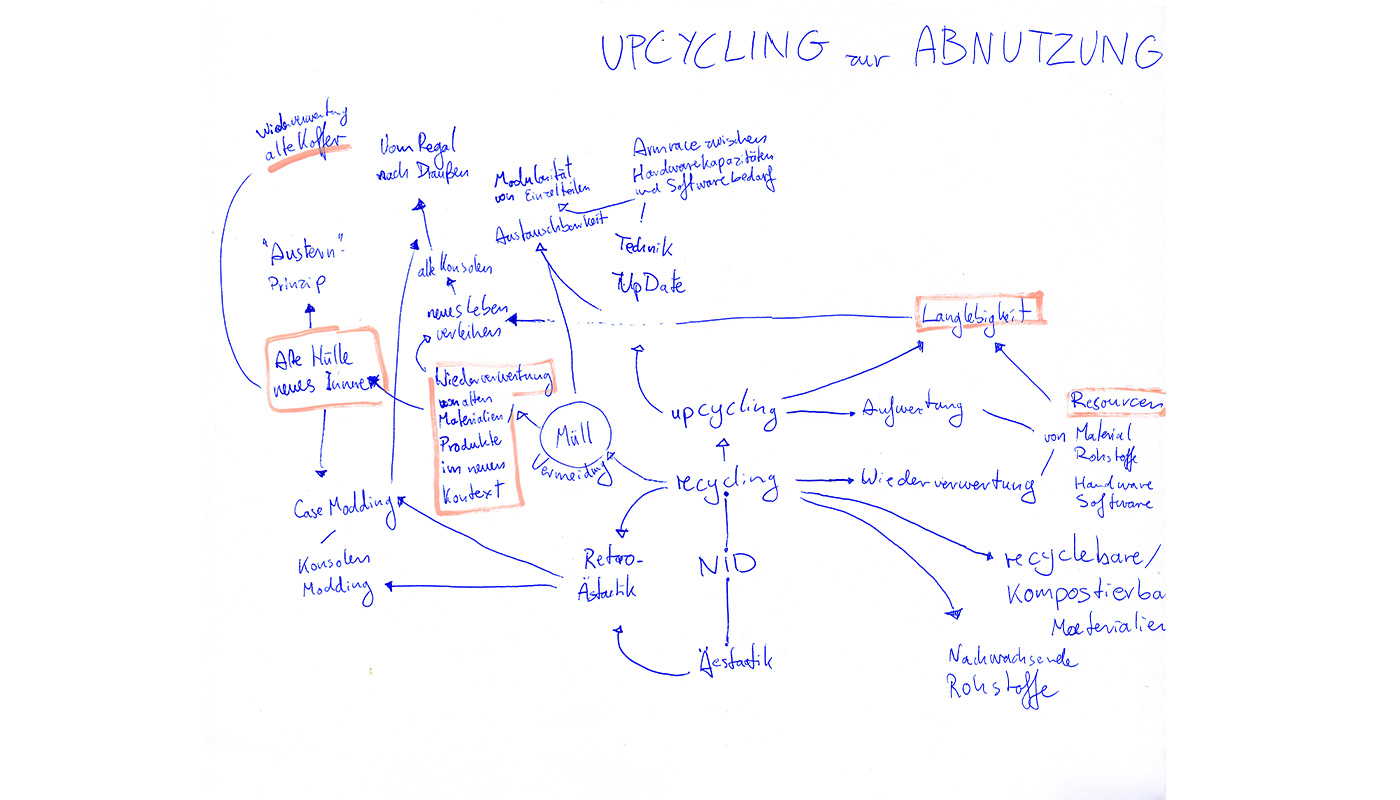 UPCYCLING zur ABNUTZUNG
Wiederverwertung
alte Koffer
Vom Regal
nach Draußen
Modularität
von Einzelteilen
Austauschbarkeit
Armrace zwischen
Hardwarekapazitäten
und Softwarebedarf
Technik
UpDate
"Austern"-
Prinzip
alte Konsolen
neues Leben
verleihen
Langlebigkeit
Alte Hülle
neues Innere
Wiederverwertung
von alten
Materialien/
Produkte
im neuen
Kontext
Müll
Vermeidung
upcycling
Aufwertung
Resourcen
von Material
Rohstoffe
Hardware
Software
recycling
Wiederverwertung
Case Modding
Konsolen
Modding
Retro-
Ästaetik
NID
recyclebare/
Kompostierba
Materialien
Äestaetik
Nachwachsende
Rohstoffe